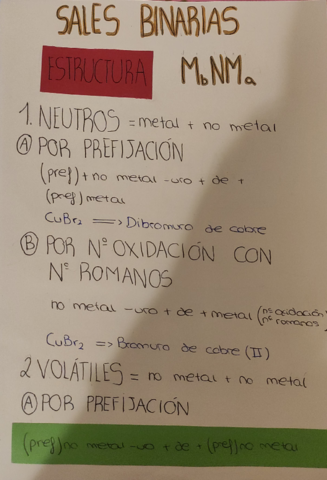 SALES BINARIAS
ESTRUCTURA MbNMa
1. NEUTROS = metal + no metal
Ⓐ POR PREFIJACIÓN
(pref) + no metal -uro + de +
(pref) metal
CuBr₂ ==> Dibromuro de cobre
Ⓑ POR Nº OXIDACIÓN CON
Nº ROMANOS
no metal -uro + de + metal (nº oxidación
nº romanos)
CuBr₂ => Bromuro de cobre (II)
2 VOLÁTILES = no metal + no metal
Ⓐ POR PREFIJACIÓN
(pref) no metal -uro + de + (pref) no metal